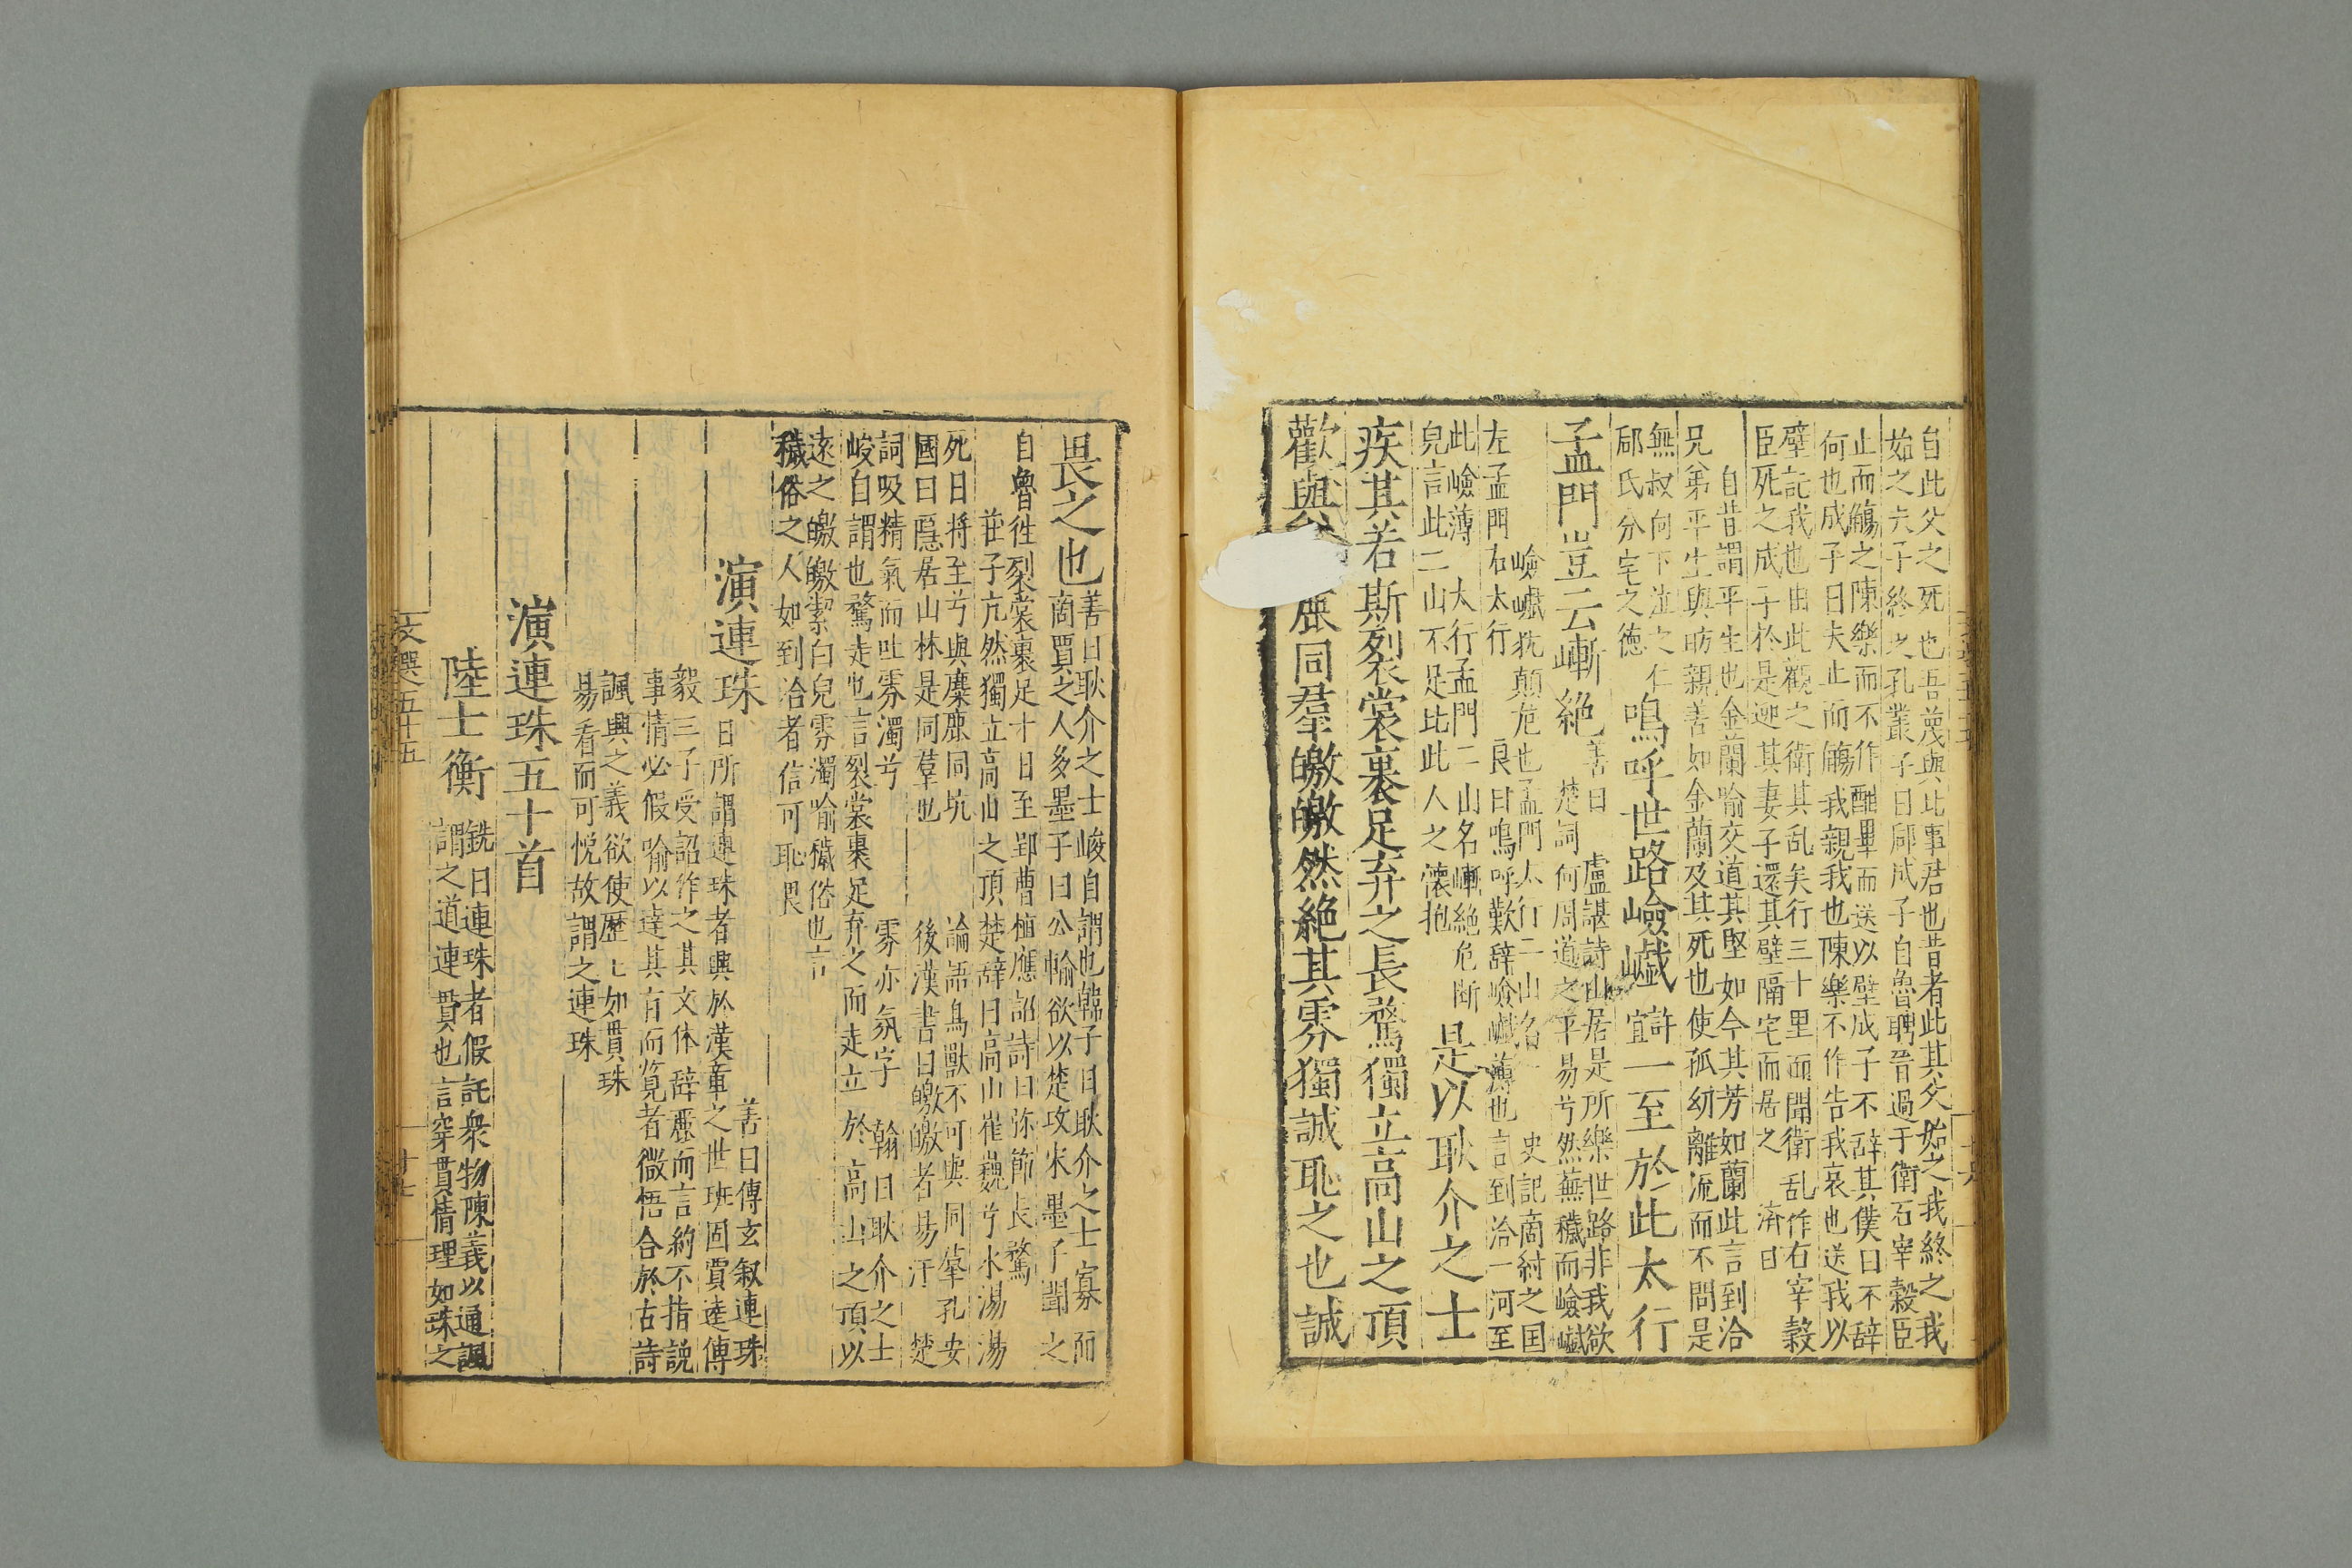 自此父之死也吾蔑與此事君也昔者此其父始之我終之我
始之夫子終之孔叢子曰郈成子自魯聘晉過于衛右宰穀臣
止而觴之陳樂而不作酣畢而送以璧成子不辞其僕曰不辞
何也成子曰夫止而觴我親我也陳樂不作告我哀也送我以
璧託我也由此觀之衛其乱矣行三十里而聞衛乱作右宰穀
臣死之成子於是迎其妻子還其璧隔宅而居之 濟曰
自昔謂平生也金蘭喻交道其堅如今其芳如蘭此言到洽
兄弟平生與昉親善如金蘭及其死也使孤幼離流而不問是
無叔向下泣之仁
郈氏分宅之德
嗚呼世路嶮巇許宜一至於此太行
孟門豈云嶄絶
善曰盧諶詩山居是所樂世路非我欲
楚詞何周道之平易兮然蕪穢而嶮巇
嶮巇犹顛危也孟門太行二山名 史記商紂之国
左孟門右太行 良曰嗚呼歎辞嶮巇薄也言到洽一河至
此嶮薄 太行孟門二山名嶄絶危斷
皃言此二山不足比此人之懐抱
是以耿介之士
疾其若斯裂裳裹足弃之長騖獨立高山之頂
歡與麋鹿同羣皦皦然絶其雰獨誠恥之也誠
畏之也
善曰耿介之士峻自謂也韓子曰耿介之士寡而
商賈之人多墨子曰公輸欲以楚攻宋墨子聞之
自魯徃裂裳裹足十日至郢曹植應詔詩曰弥節長騖
莊子亢然獨立高山之頂楚辞曰高山崔巍兮水湯湯
死日将至兮與麋鹿同坑 論語鳥獸不可與同羣孔安
國曰隱居山林是同羣也 後漢書曰皦皦者易汙 楚
詞吸精氣而吐雰濁兮 雰亦氛字 翰曰耿介之士
峻自謂也騖走也言裂裳裹足弃之而走立於高山之頂以
遠之皦皦絜白皃雰濁喻穢俗也言
穢俗之人如到洽者信可恥畏
演連珠
善曰傅玄叙連珠
曰所謂連珠者興於漢章之世班固賈逵傅
毅三子受詔作之其文体辞麗而言約不指説
事情必假喻以達其有而覽者微悟合於古詩
諷興之義欲使歷七如貫珠
易看而可悦故謂之連珠
演連珠五十首
陸士衡
銑曰連珠者假託衆物陳義以通諷
謂之道連貫也言穿貫情理如珠之
文選五十五